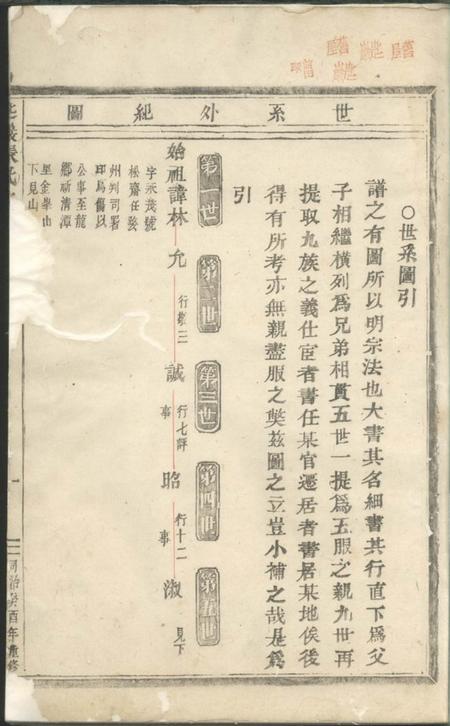 世系外紀圖
○世系圖引
譜之有圖所以明宗法也大書其名細書其行直下為父
子相繼橫列為兄弟相貫五世一提為五服之親九世再
提取九族之義仕宦者書任某官遷居者書居某地俟後
得有所考亦無親盡服之獘茲圖之立豈小補之哉是為
引
第一世
第二世
第三世
第四世
第五世
始祖諱林
允
行敬三
誠
行七評
事
昭
行十二
事
淑
見下
字永茂號
松齋任婺
州判司署
印為傷以
公事至龍
鄉祈清潭
里金
山
下見山
同治癸酉年重修